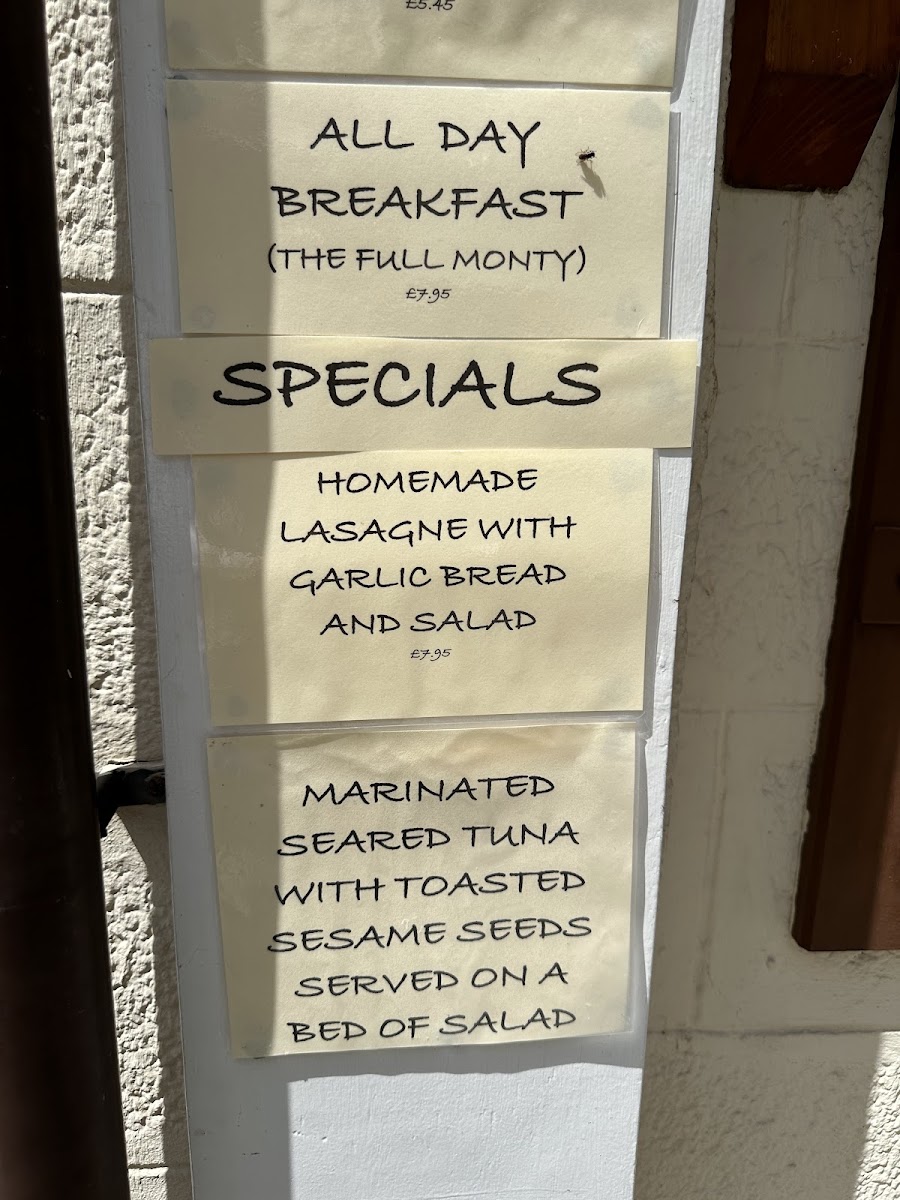 £5.45
ALL DAY
BREAKFAST
(THE FULL MONTY)
£7.95
SPECIALS
HOMEMADE
LASAGNE WITH
GARLIC BREAD
AND SALAD
£7.95
MARINATED
SEARED TUNA
WITH TOASTED
SESAME SEEDS
SERVED ON A
BED OF SALAD